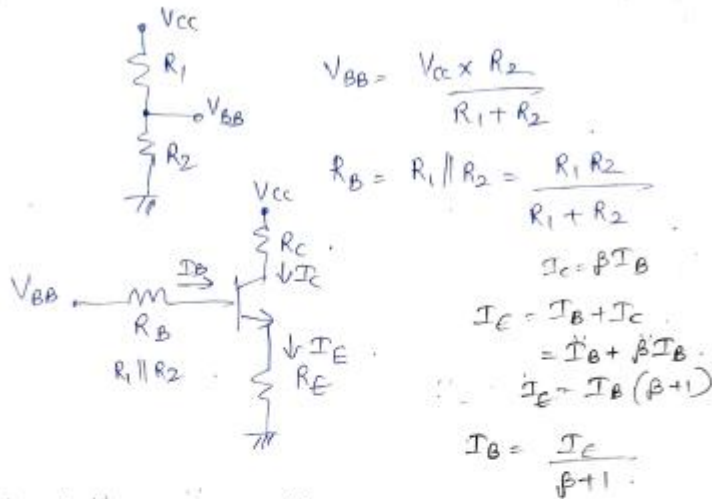 Vcc
R1
VBB
R2
VBB = Vcc x R2
R1 + R2
RB = R1 || R2 = R1 R2
R1 + R2
Vcc
RC
IB
↓ IC
VBB
RB
R1 || R2
↓ IE
RE
IC = βIB
IE = IB + IC
= IB + βIB
IE = IB (β+1)
IB = IE
β+1